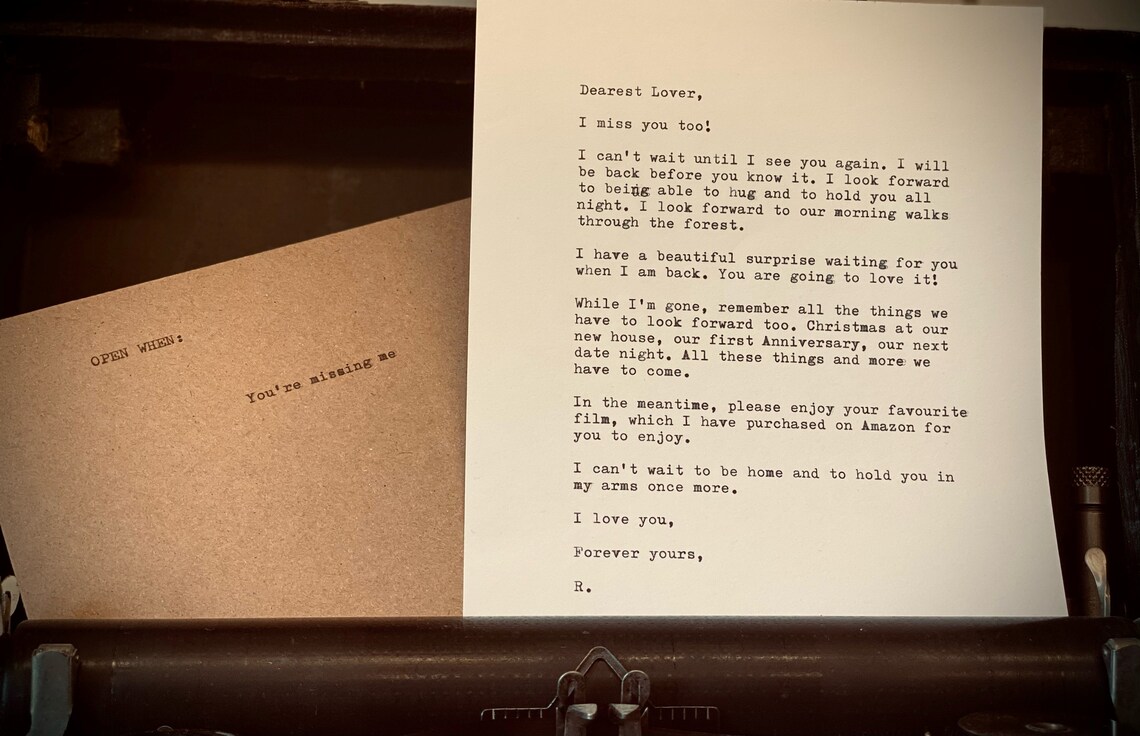 OPEN WHEN:
You're missing me
Dearest Lover,
I miss you too!
I can't wait until I see you again. I will
be back before you know it. I look forward
to being able to hug and to hold you all
night. I look forward to our morning walks
through the forest.
I have a beautiful surprise waiting for you
when I am back. You are going to love it!
While I'm gone, remember all the things we
have to look forward too. Christmas at our
new house, our first Anniversary, our next
date night. All these things and more we
have to come.
In the meantime, please enjoy your favourite
film, which I have purchased on Amazon for
you to enjoy.
I can't wait to be home and to hold you in
my arms once more.
I love you,
Forever yours,
R.